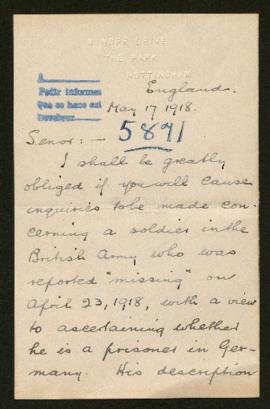 HOPE DRIVE
THE PARK
NOTTINGHAM
England.
A
Pedir informes
Que se hace así
May 17 1918.
5871
Senor: —
I shall be greatly
obliged if you will cause
inquiries to be made con-
cerning a soldier in the
British Army who was
reported "missing" on
April 23, 1918, with a view
to ascertaining whether
he is a prisoner in Ger-
many. His description